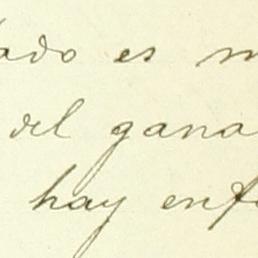 ado es m
del gana
hay enf